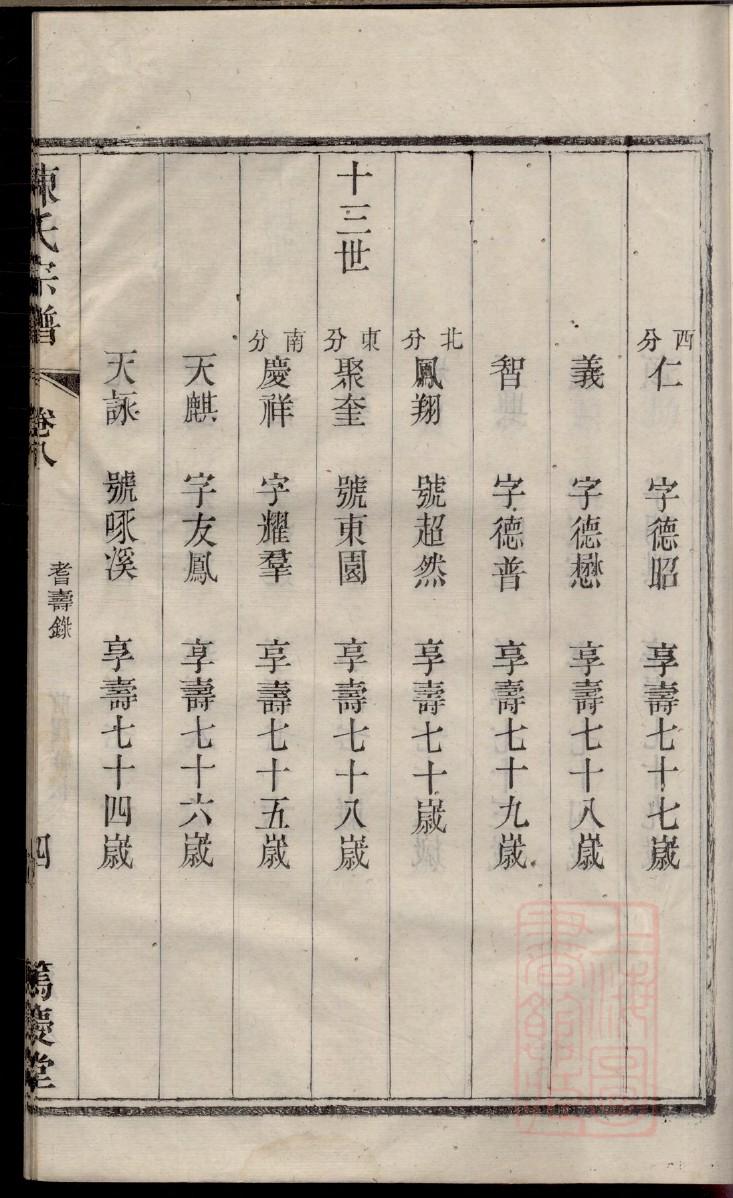 西分仁 字德昭 享壽七十七歲
義 字德懋 享壽七十八歲
智 字德普 享壽七十九歲
北分鳳翔 號超然 享壽七十歲
十三世 東分聚奎 號東園 享壽七十八歲
南分慶祥 字耀羣 享壽七十五歲
天麒 字友鳳 享壽七十六歲
天詠 號啄溪 享壽七十四歲
陳氏宗譜 卷八 耆壽錄 四 篤慶堂
上海圖書館藏